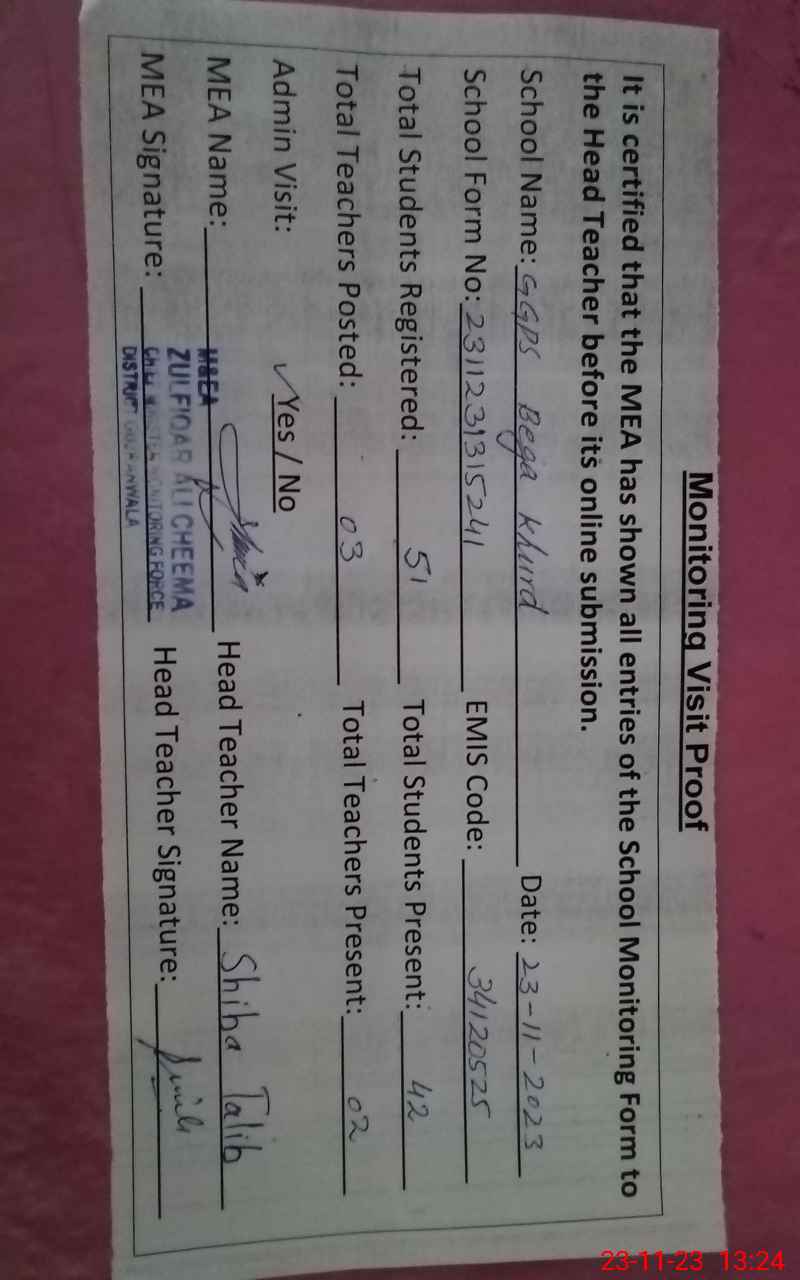 Monitoring Visit Proof
It is certified that the MEA has shown all entries of the School Monitoring Form to
the Head Teacher before its online submission.
School Name: GGPS Bega Khurd Date: 23-11-2023
School Form No: 231123131524| EMIS Code: 34120525
Total Students Registered: 51 Total Students Present: 42
Total Teachers Posted: 03 Total Teachers Present: 02
Admin Visit: ✓Yes / No
MEA Name: Head Teacher Name: Shiba Talib
MEA Signature: Head Teacher Signature:
M&EA
ZULFIQAR ALI CHEEMA
MONITORING FORCE
DISTRICT GUJRANWALA
23-11-23 13:24